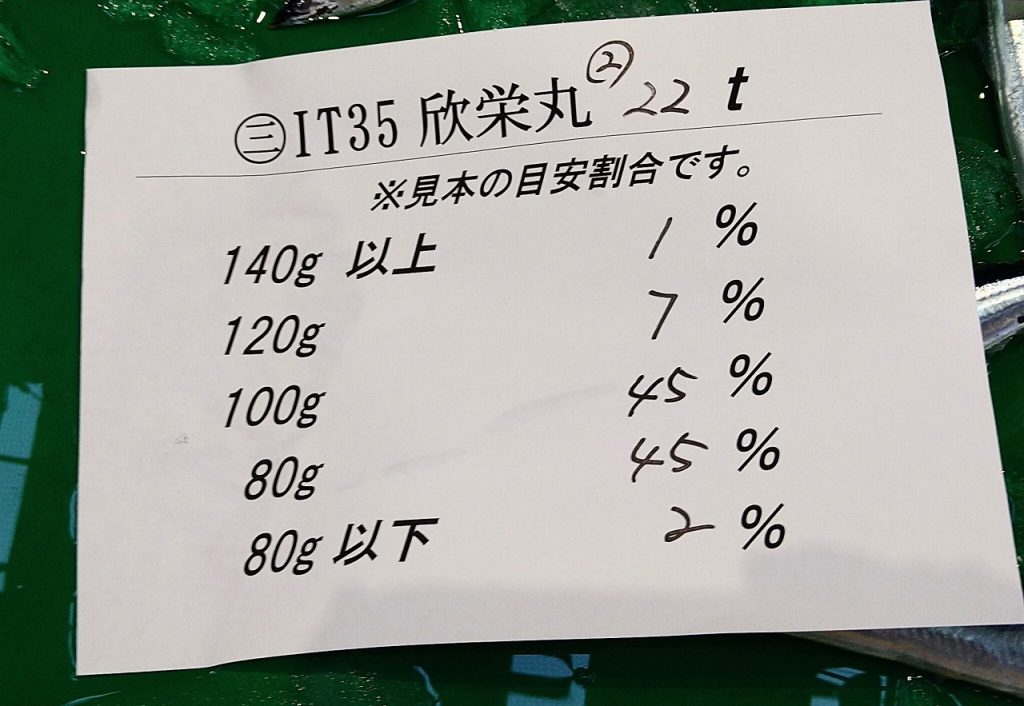 ㊂IT35 欣栄丸② 22 t
※見本の目安割合です。
140g 以上 1 %
120g 7 %
100g 45 %
80g 45 %
80g 以下 2 %